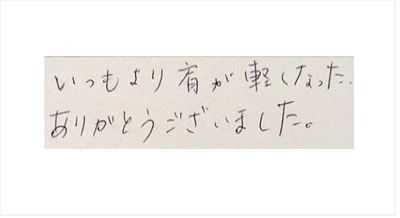 いつもより肩が軽くなった.
ありがとうございました。